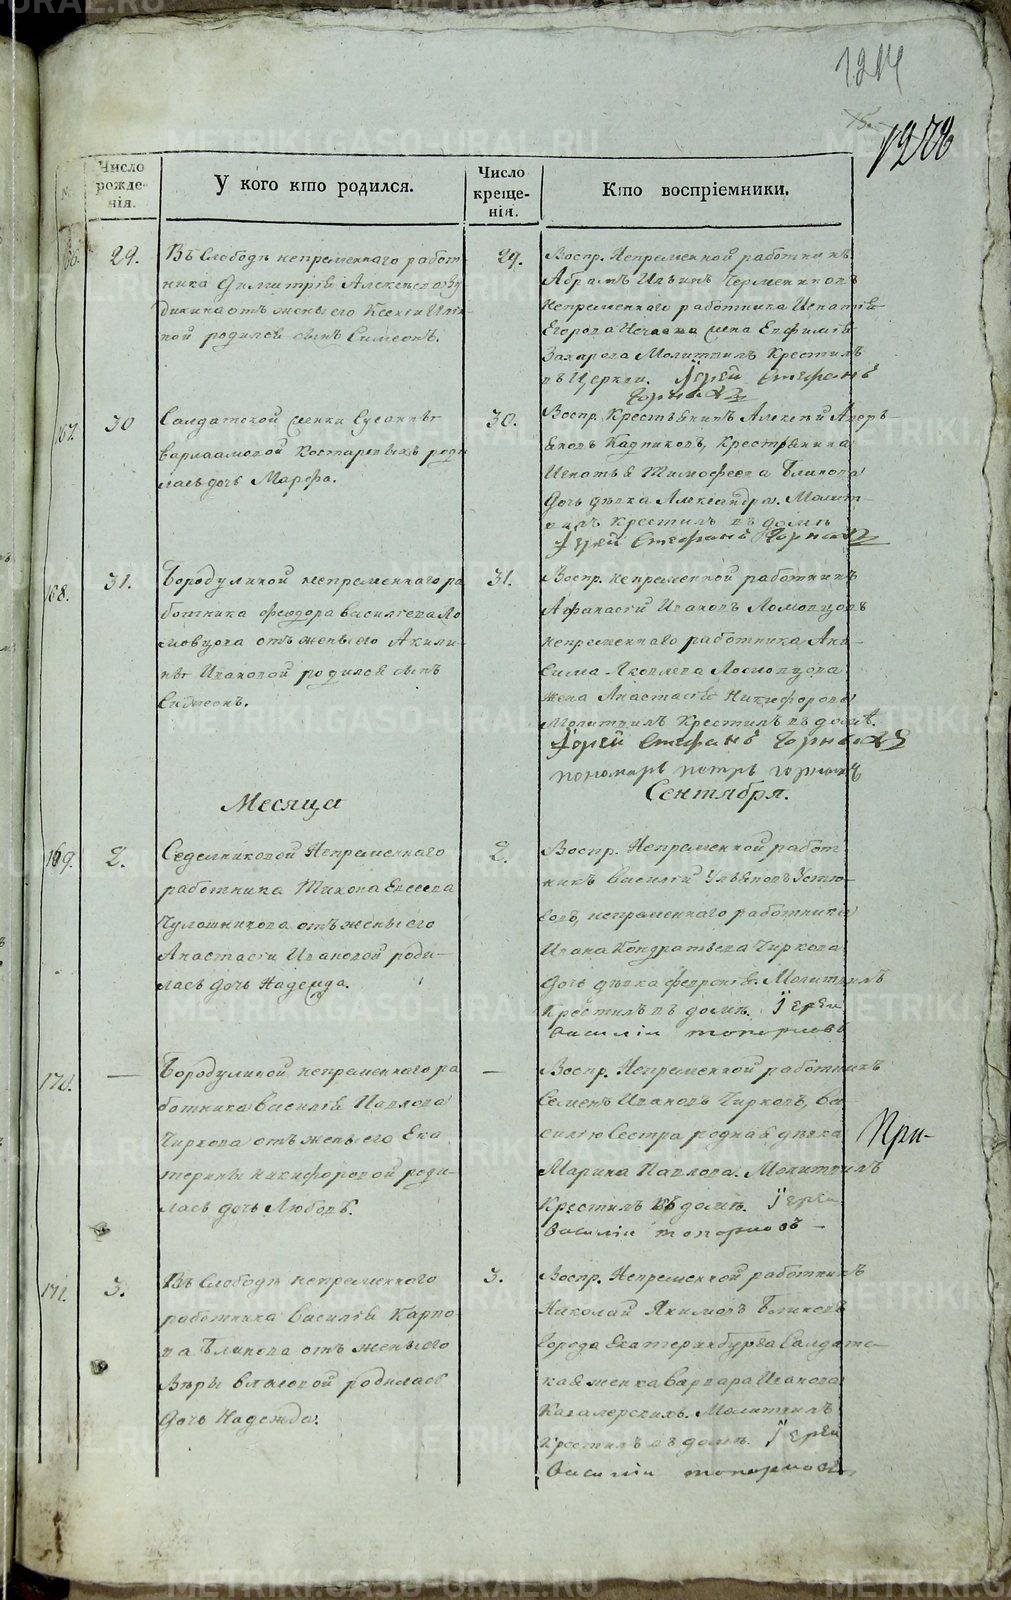 1214
1208
№
Число рожде-нія.
У кого кто родился.
Число креще-нія.
Кто воспріемники.
166.
29.
Въ Слободѣ непременнаго работ
ника Димитрія Алексѣева
дикина отъ жены его Ксеніи Иль
ной родился сынъ Симеонъ.
29.
Воспр. Непременной работникъ
Абрамъ Ильинъ Черменяковъ
непременнаго работника Игнатія
Егорова жена Евфимія
Захарова Молитвилъ Крестилъ
въ Церкви. Іерей Стефанъ
167.
30
Салдатской женки Сусанны
Варлаамовой Костаревыхъ роди
лась дочь Марфа.
30.
Воспр. Крестьянинъ Алексѣй Авер-
Кадниковъ, крестьянина
Игнатья Тимофеева Блинова
дочь дѣвка Александра. Молит-
вилъ Крестилъ въ домѣ
Іерей Стефанъ
168.
31.
Бородулиной непременнаго ра
ботника Феодора Васильева Ло
мовцова отъ жены его Акили-
ны Ивановой родился сынъ
Симеонъ.
31.
Воспр. непременной работникъ
Афанасій Ивановъ Ломовцовъ
непременнаго работника Ани-
сима Яковлева Ломовцова
жена Анастасія Никифорова
Молитвилъ Крестилъ въ домѣ.
Іерей Стефанъ
пономарь Петръ
Месяца
Сентября.
169.
2.
Седельниковой Непременнаго
работника Тихона Евсеева
Чулошникова отъ жены его
Анастасіи Ивановой роди-
лась дочь Надежда.
2.
Воспр. Непременной работ
никъ Василій Ульяновъ Устю-
говъ, непременнаго работника
Ивана Кондратьева Чиркова
дочь дѣвка Февронія. Молитвилъ
Крестилъ въ домѣ. Іерей
Василій Топорковъ
170.
—
Бородулиной непременнаго ра
ботника Василія Павлова
Чиркова отъ жены его Ека
терины Никифоровой роди-
лась дочь Любовь.
—
Воспр. Непременной работникъ
Семенъ Ивановъ Чирковъ, Ва-
силію Сестра родная дѣвка
Марина Павлова. Молитвилъ
Крестилъ въ домѣ. Іерей
Василій Топорковъ
При-
171.
3.
Въ Слободѣ непременнаго
работника Василія Карпо
ва Блинова отъ жены его
Вѣры Власовой родилась
дочь Надежда.
3.
Воспр. Непременной работникъ
Николай Якимовъ Блиновъ
города Екатеринбурга Салдатс-
кая женка Варвара Иванова
Кавалерскихъ. Молитвилъ
Крестилъ въ домѣ. Іерей
Василій Топорковъ
METRIKI.GASO-URAL.RU